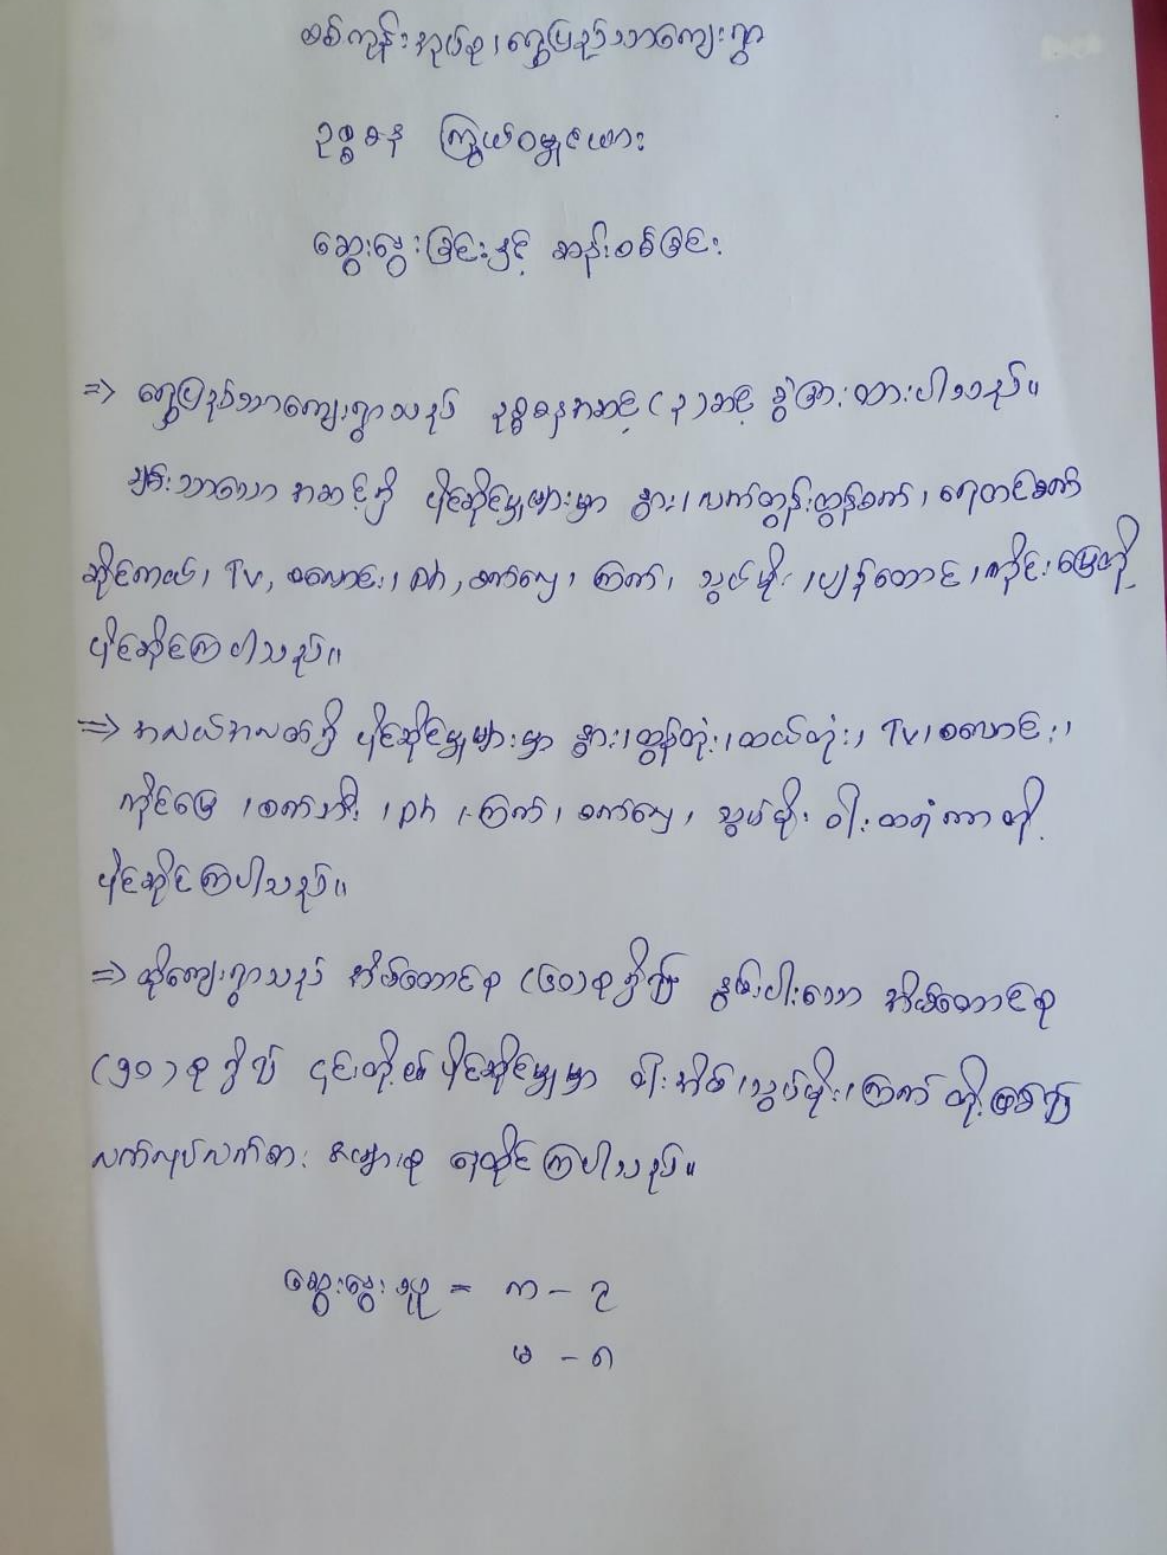 စစ်ကုန်းအုပ်စု၊ရွှေပြည်သာကျေးရွာ
ဥစ္စဓန ကြွယ်ဝမှုဇယား
ဆွေးနွေးခြင်းနှင့် ဆန်းစစ်ခြင်း
=> ရွှေပြည်သာကျေးရွာသည် ဥစ္စဓနအဆင့် (၃)ဆင့် ခွဲခြားထားပါသည်။
ချမ်းသာသော အဆင့်၌ ပိုင်ဆိုင်မှုများမှာ နွား၊လက်တွန်းထွန်စက်၊ ရေတင်စက်
ဆိုင်ကယ်၊ TV, စလောင်း၊ ph, စက်လှေ၊ ကြက်၊ သွပ်မိုး ၊ပျဉ်ထောင်၊ကိုင်းမြေတို့
ပိုင်ဆိုင်ကြပါသည်။
=> အလယ်အလတ်၌ ပိုင်ဆိုင်မှုများမှာ နွား၊ထွန်တုံး၊ထယ်တုံး၊ TV၊စလောင်း၊
ကိုင်းမြေ ၊စက်ဘီး ၊ph ၊ကြက်၊ စက်လှေ၊ သွပ်မိုး ဝါးထရံကာတို့
ပိုင်ဆိုင်ကြပါသည်။
=> ထိုကျေးရွာသည် အိမ်ထောင်စု (၆၀)စုရှိပြီး နွမ်းပါးသော အိမ်ထောင်စု
(၅၁)စုရှိပြီး ၎င်းတို့၏ပိုင်ဆိုင်မှုမှာ ဝါးအိမ်၊သွပ်မိုး၊ကြက်တို့ဖြစ်ပြီး
လက်လုပ်လက်စား အများစု နေထိုင်ကြပါသည်။
ဆွေးနွေးသူ = ကျ - ၃
မ - ၈